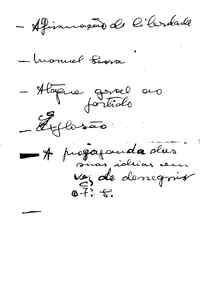 - Afirmação de liberdade
- Manuel Serra
- Ataque geral ao
partido
- Explosão
- A propaganda das
suas ideias em
vez de denegrir
o P. C.
-